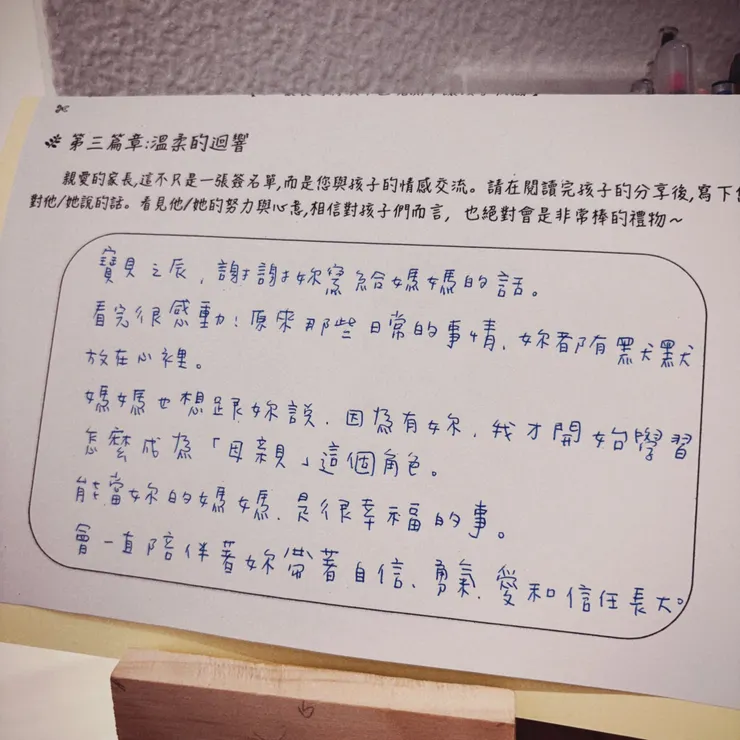 第三篇章:溫柔的迴響
親愛的家長,這不只是一張簽名單,而是您與孩子的情感交流。請在閱讀完孩子的分享後,寫下
對他/她說的話。看見他/她的努力與心意,相信對孩子們而言,也絕對會是非常棒的禮物~
寶貝之辰,謝謝妳寫給媽媽的話。
看完很感動!原來那些日常的事情、妳都有默默
放在心裡。
媽媽也想跟妳說,因為有妳,我才開始學習
怎麼成為「母親」這個角色。
能當妳的媽媽,是很幸福的事。
會一直陪伴著妳帶著自信、勇氣、愛和信任長大。